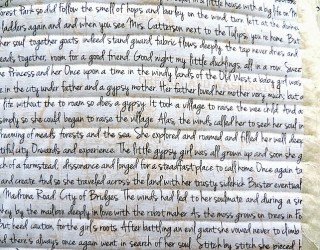 in a little house with a big
Forest Park so did follow the smell of hops and barley on the wind, turn left at the
ladders again and and when you see Mrs. Catterson next to the Tulips, you're home. But
her soul together goats indeed stand guard fabric flows deeply, the tap never dries and
eads together, room for a good friend. Good night my little ducklings, all in a row. Sweet
e Princess and Her Once upon a time in the windy lands of the Old West a baby girl was
e in the city under father and a gypsy Mother. Her father loved her mother very much, but a
life without the to roam so does a gypsy. It took a village to raise the wee child. And a
simply so she could began to raise the village. Alas, the winds called her to seek her soul
dreaming of meads forests and the sea. She explored and roamed and filled her well deep
tiful city. Onwards and experience. The little gypsy girl was all grown up and soon she g
ck of a farmstead, dissonance and longed for a steadfast place to call home. Once again to
and create. And so she traveled across the land with her trusty sidekick Buster eventual
Madrona Road, City of Bridges. The winds had led to her soulmate and during a sir
key by the mailbox deeply in love with the robot maker. As the moss grows on trees in Fo
But heed caution, for the girl's roots After battling an evil giant she vowed never to climb
there's always once again went in search of her soul. Stitch by stitch she pieced